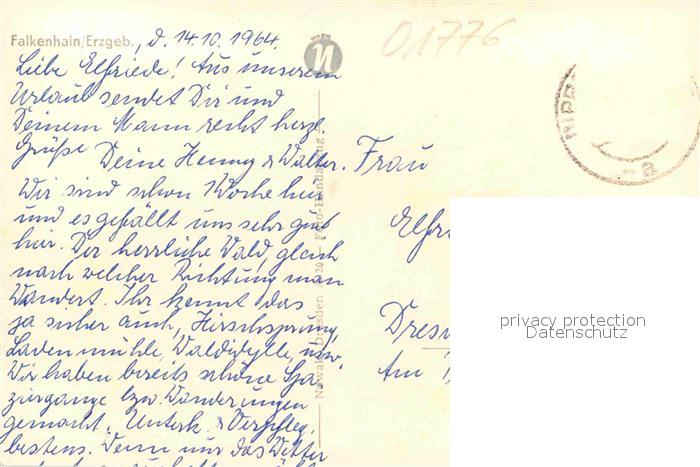 Falkenhain/Erzgeb., d. 14.10.1964.
Liebe Elfriede! Aus unserem
Urlaub sendet Dir und
Deinem Mann recht herzl.
Grüße Deine Henny & Walter.
Wir sind schon 1 Woche hier
und es gefällt uns sehr gut
hier. Der herrliche Wald, gleich
nach welcher Richtung man
wandert. Ihr kennt das
ja sicher auch, Hirschsprung,
Ladenmühle, Waldidylle, usw.
Wir haben bereits schöne Spa
ziergänge bzw. Wanderungen
gemacht. Unterk. & Verpfleg.
bestens. Wenn nur das Wetter
01776
Frau
Elfri
Dres
Am
privacy protection
Datenschutz
Dresden